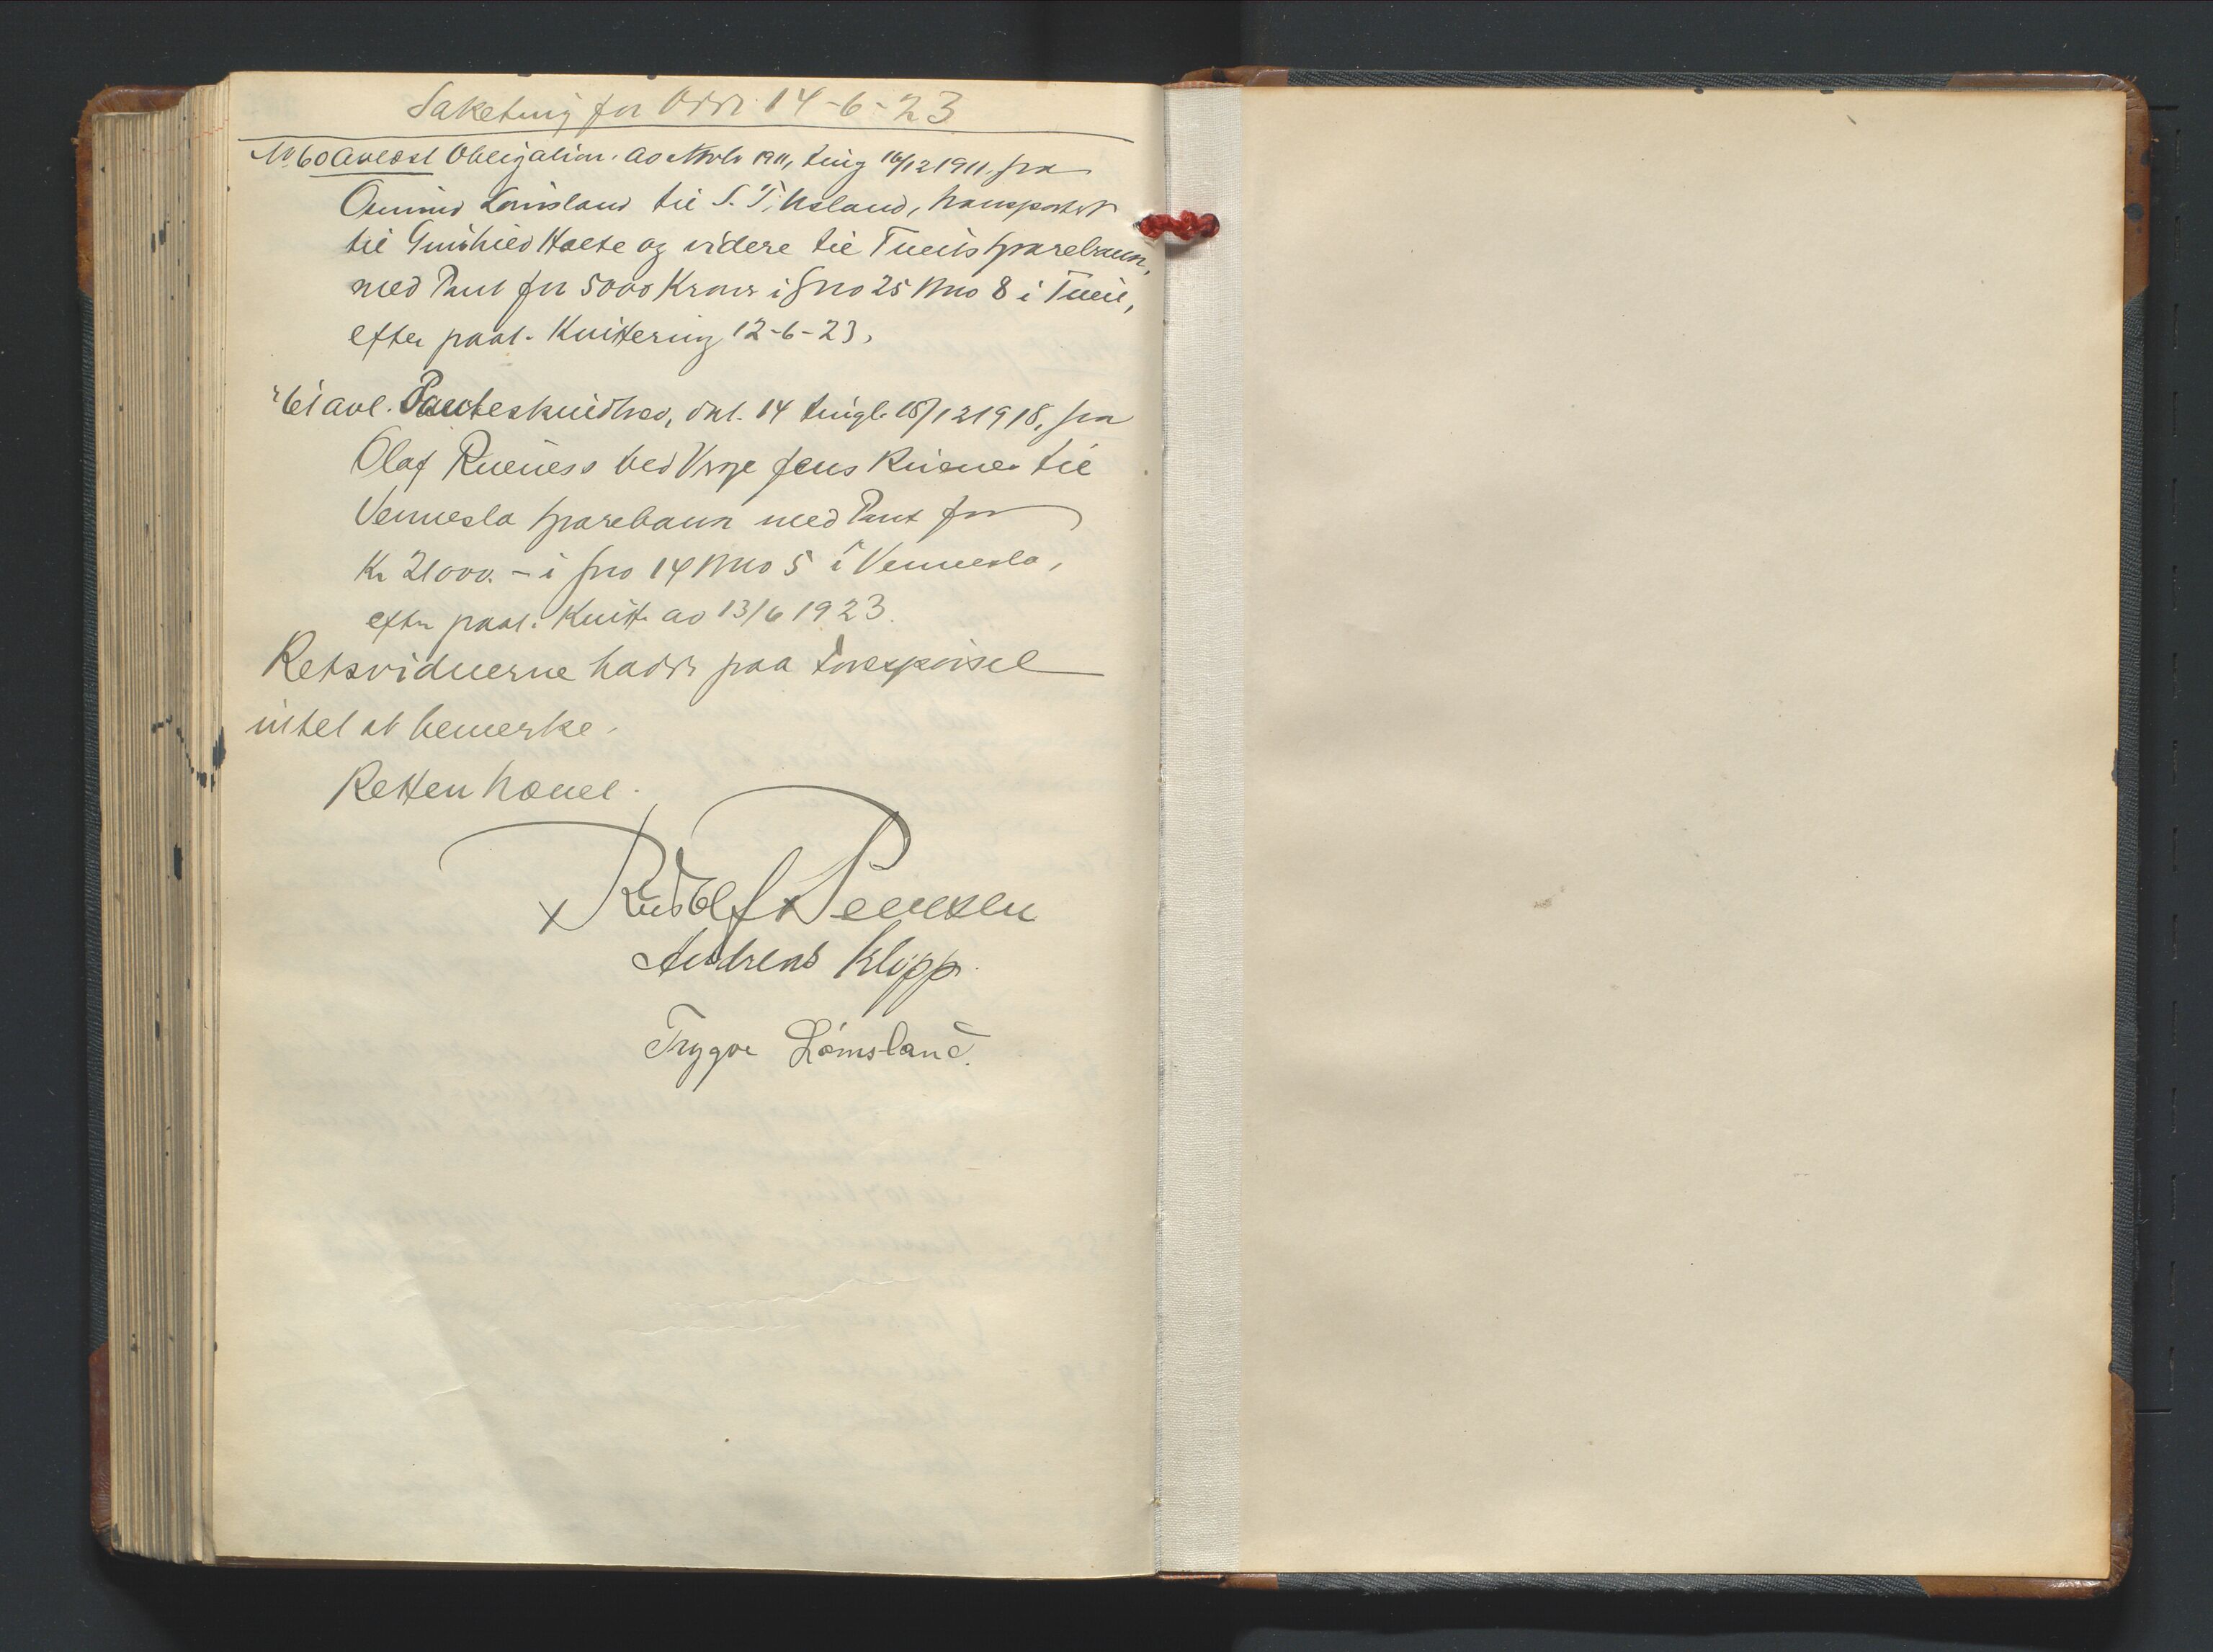 Saketing for Odde 14-6-23
No 60 Avløst Obligation. av Novb 1911, ting 16/12 1911, fra
Lømsland til S. T. Usland, transportert
til Gunhild Holte og videre til Tveits Sparebank,
med Pant for 5000 Kroner i Gno 25 Bno 8 i Tveit,
efter paat. Kvittering 12-6-23,
" 61 avl. Panteskuldbrev, dat. 14 tingl. 18/12 1918, fra
Olaf ved Verge Jens til
Vennesla Sparebank med Pant for
Kr 21000.- i Gno 14 Bno 5 i Vennesla,
efter paat. Kvitt. av 13/6 1923.
Retsvidnerne hadde paa Forespørsel
intet at bemerke.
Retten hævet.
x Rudolf x
Andreas Kløpp.
Trygve Lømsland.